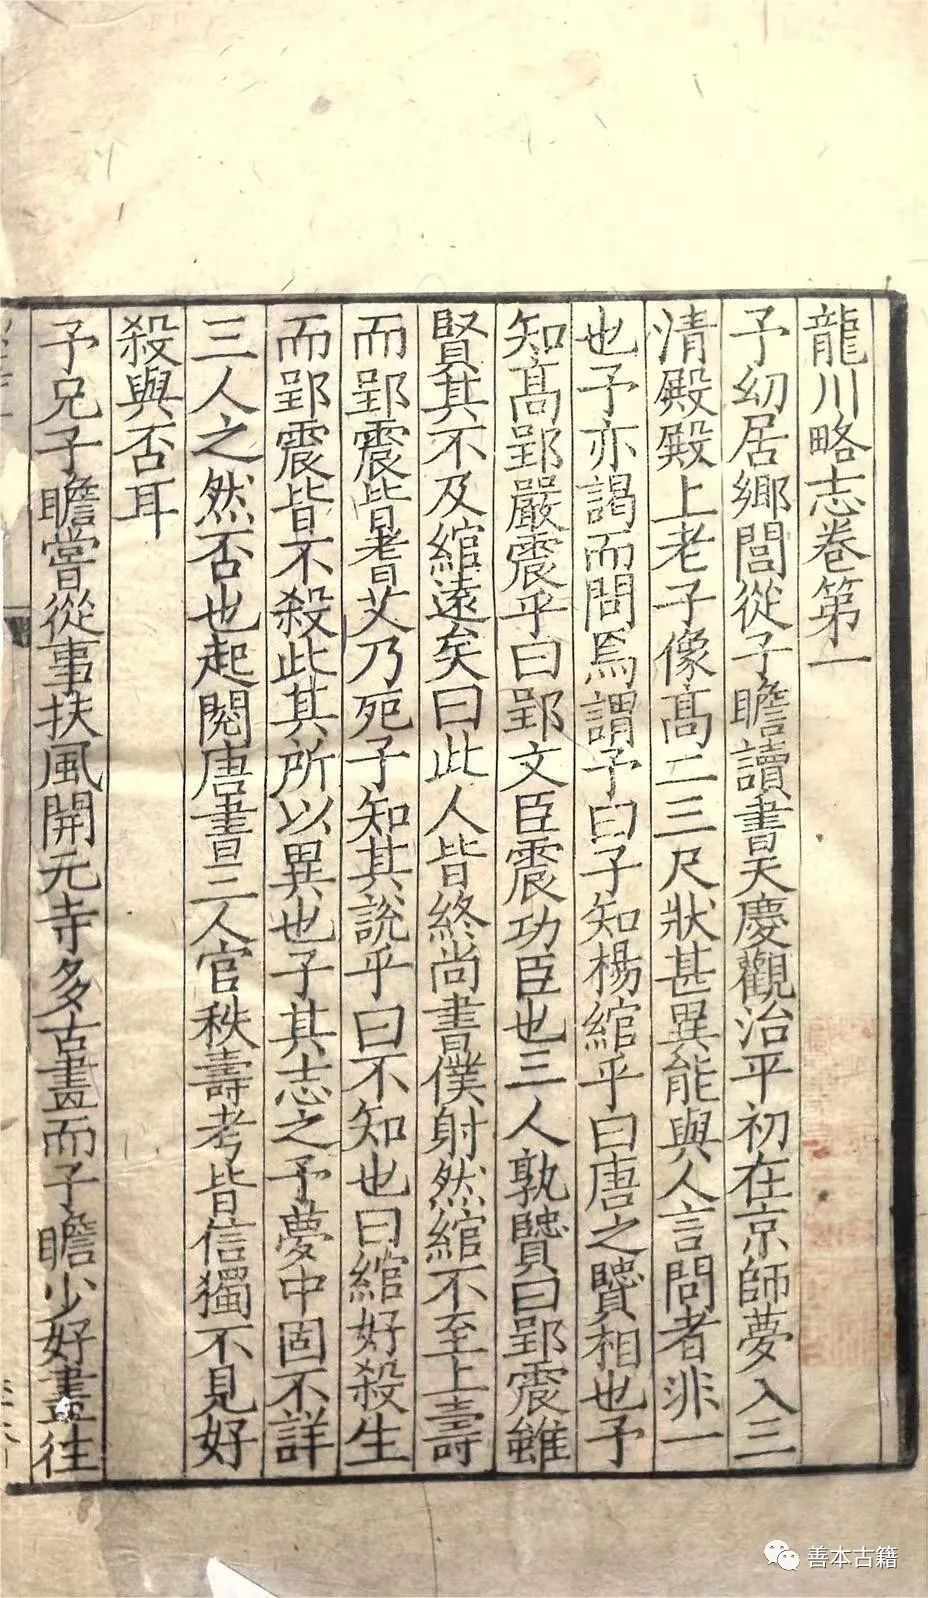 龍川略志卷第一
予幼居鄉閭從子瞻讀書天慶觀治平初在京師夢入三
清殿殿上老子像高二三尺狀甚異能與人言問者非一
也予亦謁而問焉謂予曰子知楊綰乎曰唐之賢相也予
知高郢嚴震乎曰郢文臣震功臣也三人孰賢曰郢震雖
賢其不及綰遠矣曰此人皆終尚書僕射然綰不至上壽
而郢震皆耆艾乃死子知其說乎曰不知也曰綰好殺生
而郢震皆不殺此其所以異也子其志之予夢中固不詳
三人之然否也起閱唐書三人官秩壽考皆信獨不見好
殺與否耳
予兄子瞻嘗從事扶風開元寺多古畫而子瞻少好畫往
善本古籍